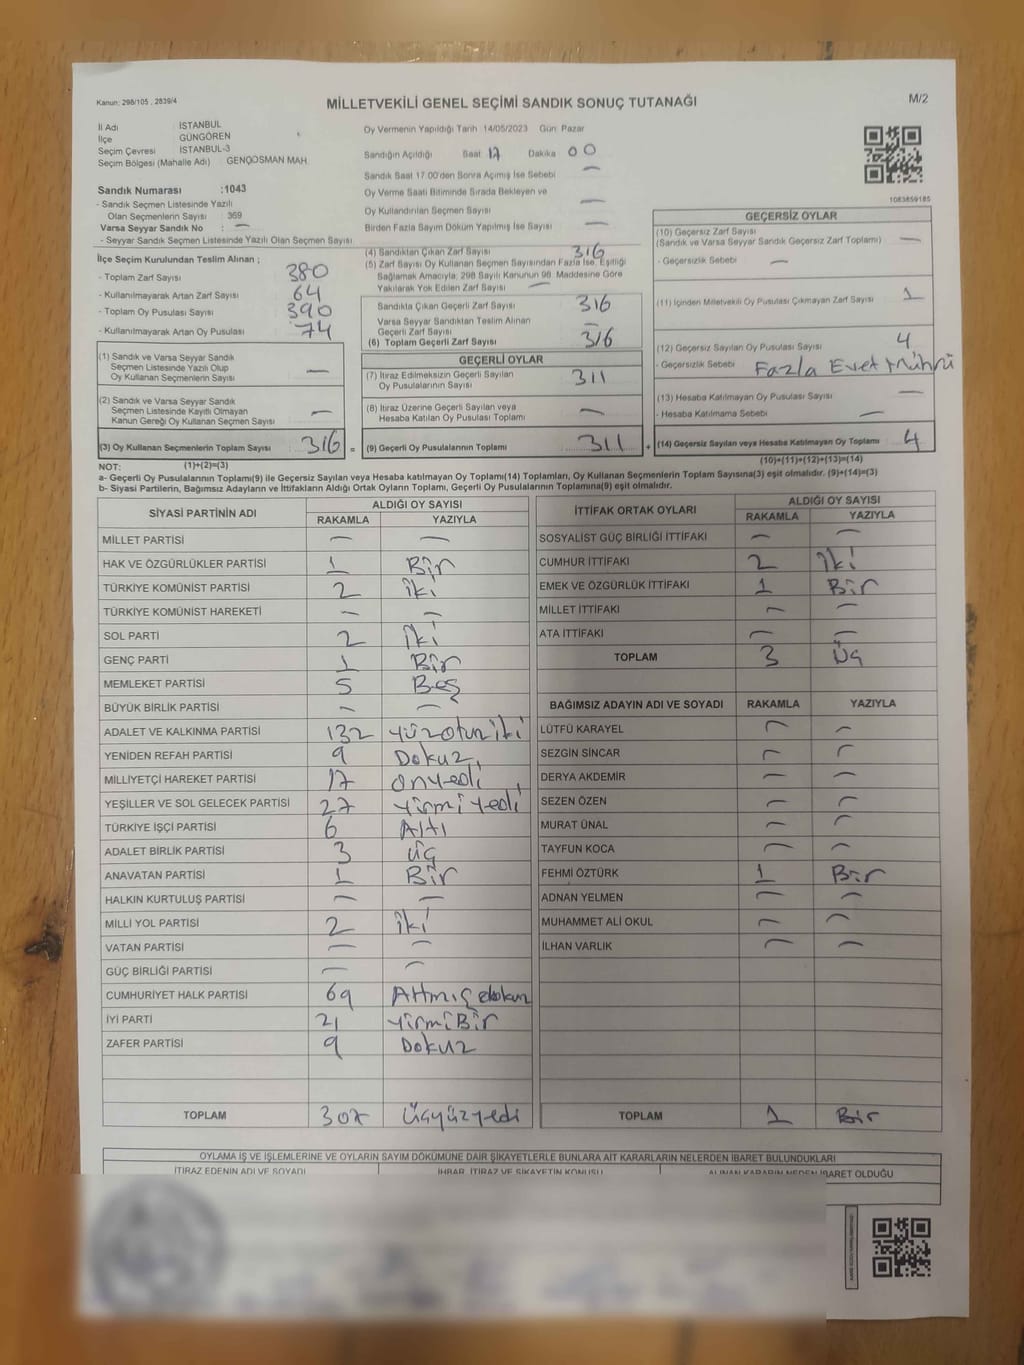 Kanun: 298/105 , 2839/4
MİLLETVEKİLİ GENEL SEÇİMİ SANDIK SONUÇ TUTANAĞI
M/2
İl Adı İSTANBUL
İlçe GÜNGÖREN
Seçim Çevresi İSTANBUL-3
Seçim Bölgesi (Mahalle Adı) GENÇOSMAN MAH.
Sandık Numarası :1043
- Sandık Seçmen Listesinde Yazılı
Olan Seçmenlerin Sayısı : 369
Varsa Seyyar Sandık No : —
- Seyyar Sandık Seçmen Listesinde Yazılı Olan Seçmen Sayısı
İlçe Seçim Kurulundan Teslim Alınan ;
- Toplam Zarf Sayısı 380
- Kullanılmayarak Artan Zarf Sayısı 64
- Toplam Oy Pusulası Sayısı 390
- Kullanılmayarak Artan Oy Pusulası 74
(1) Sandık ve Varsa Seyyar Sandık
Seçmen Listesinde Yazılı Olup
Oy Kullanan Seçmenlerin Sayısı —
(2) Sandık ve Varsa Seyyar Sandık
Seçmen Listesinde Kayıtlı Olmayan
Kanun Gereği Oy Kullanan Seçmen Sayısı —
(3) Oy Kullanan Seçmenlerin Toplam Sayısı 316
Oy Vermenin Yapıldığı Tarih 14/05/2023 Gün Pazar
Sandığın Açıldığı Saat 17 Dakika 00
Sandık Saat 17.00'den Sonra Açılmış İse Sebebi —
Oy Verme Saati Bitiminde Sırada Bekleyen ve
Oy Kullandırılan Seçmen Sayısı —
Birden Fazla Sayım Döküm Yapılmış İse Sayısı —
(4) Sandıktan Çıkan Zarf Sayısı 316
(5) Zarf Sayısı Oy Kullanan Seçmen Sayısından Fazla İse, Eşitliği
Sağlamak Amacıyla; 298 Sayılı Kanunun 98. Maddesine Göre
Yakılarak Yok Edilen Zarf Sayısı —
Sandıkta Çıkan Geçerli Zarf Sayısı 316
Varsa Seyyar Sandıktan Teslim Alınan
Geçerli Zarf Sayısı —
(6) Toplam Geçerli Zarf Sayısı 316
GEÇERLİ OYLAR
(7) İtiraz Edilmeksizin Geçerli Sayılan
Oy Pusulalarının Sayısı 311
(8) İtiraz Üzerine Geçerli Sayılan veya
Hesaba Katılan Oy Pusulası Toplamı —
= (9) Geçerli Oy Pusulalarının Toplamı 311 +
1083859185
GEÇERSİZ OYLAR
(10) Geçersiz Zarf Sayısı
(Sandık ve Varsa Seyyar Sandık Geçersiz Zarf Toplamı) —
- Geçersizlik Sebebi —
(11) İçinden Milletvekili Oy Pusulası Çıkmayan Zarf Sayısı 1
(12) Geçersiz Sayılan Oy Pusulası Sayısı 4
- Geçersizlik Sebebi Fazla Evet Mührü
(13) Hesaba Katılmayan Oy Pusulası Sayısı —
- Hesaba Katılmama Sebebi —
(14) Geçersiz Sayılan veya Hesaba Katılmayan Oy Toplamı 4
NOT: (1)+(2)=(3)
(10)+(11)+(12)+(13)=(14)
a- Geçerli Oy Pusulalarının Toplamı(9) ile Geçersiz Sayılan veya Hesaba katılmayan Oy Toplamı(14) Toplamları, Oy Kullanan Seçmenlerin Toplam Sayısına(3) eşit olmalıdır. (9)+(14)=(3)
b- Siyasi Partilerin, Bağımsız Adayların ve İttifakların Aldığı Ortak Oyların Toplamı, Geçerli Oy Pusulalarının Toplamına(9) eşit olmalıdır.
SİYASİ PARTİNİN ADI ALDIĞI OY SAYISI
RAKAMLA YAZIYLA
MİLLET PARTİSİ — —
HAK VE ÖZGÜRLÜKLER PARTİSİ 1 Bir
TÜRKİYE KOMÜNİST PARTİSİ 2 İki
TÜRKİYE KOMÜNİST HAREKETİ — —
SOL PARTİ 2 İki
GENÇ PARTİ 1 Bir
MEMLEKET PARTİSİ 5 Beş
BÜYÜK BİRLİK PARTİSİ — —
ADALET VE KALKINMA PARTİSİ 132 yüzotuziki
YENİDEN REFAH PARTİSİ 9 Dokuz
MİLLİYETÇİ HAREKET PARTİSİ 17 onyedi
YEŞİLLER VE SOL GELECEK PARTİSİ 27 yirmiyedi
TÜRKİYE İŞÇİ PARTİSİ 6 Altı
ADALET BİRLİK PARTİSİ 3 Üç
ANAVATAN PARTİSİ 1 Bir
HALKIN KURTULUŞ PARTİSİ — —
MİLLİ YOL PARTİSİ 2 iki
VATAN PARTİSİ — —
GÜÇ BİRLİĞİ PARTİSİ — —
CUMHURİYET HALK PARTİSİ 69 Atmış dokuz
İYİ PARTİ 21 yirmiBir
ZAFER PARTİSİ 9 Dokuz
TOPLAM 307 Üçyüzyedi
İTTİFAK ORTAK OYLARI ALDIĞI OY SAYISI
RAKAMLA YAZIYLA
SOSYALİST GÜÇ BİRLİĞİ İTTİFAKI — —
CUMHUR İTTİFAKI 2 İki
EMEK VE ÖZGÜRLÜK İTTİFAKI 1 Bir
MİLLET İTTİFAKI — —
ATA İTTİFAKI — —
TOPLAM 3 Üç
BAĞIMSIZ ADAYIN ADI VE SOYADI RAKAMLA YAZIYLA
LÜTFÜ KARAYEL — —
SEZGİN SİNCAR — —
DERYA AKDEMİR — —
SEZEN ÖZEN — —
MURAT ÜNAL — —
TAYFUN KOCA — —
FEHMİ ÖZTÜRK 1 Bir
ADNAN YELMEN — —
MUHAMMET ALİ OKUL — —
İLHAN VARLIK — —
TOPLAM 1 Bir
OYLAMA İŞ VE İŞLEMLERİNE VE OYLARIN SAYIM DÖKÜMÜNE DAİR ŞİKAYETLERLE BUNLARA AİT KARARLARIN NELERDEN İBARET BULUNDUKLARI
İTİRAZ EDENİN ADI VE SOYADI İHBAR, İTİRAZ VE ŞİKAYETİN KONUSU ALINAN KARARIN NEDEN İBARET OLDUĞU